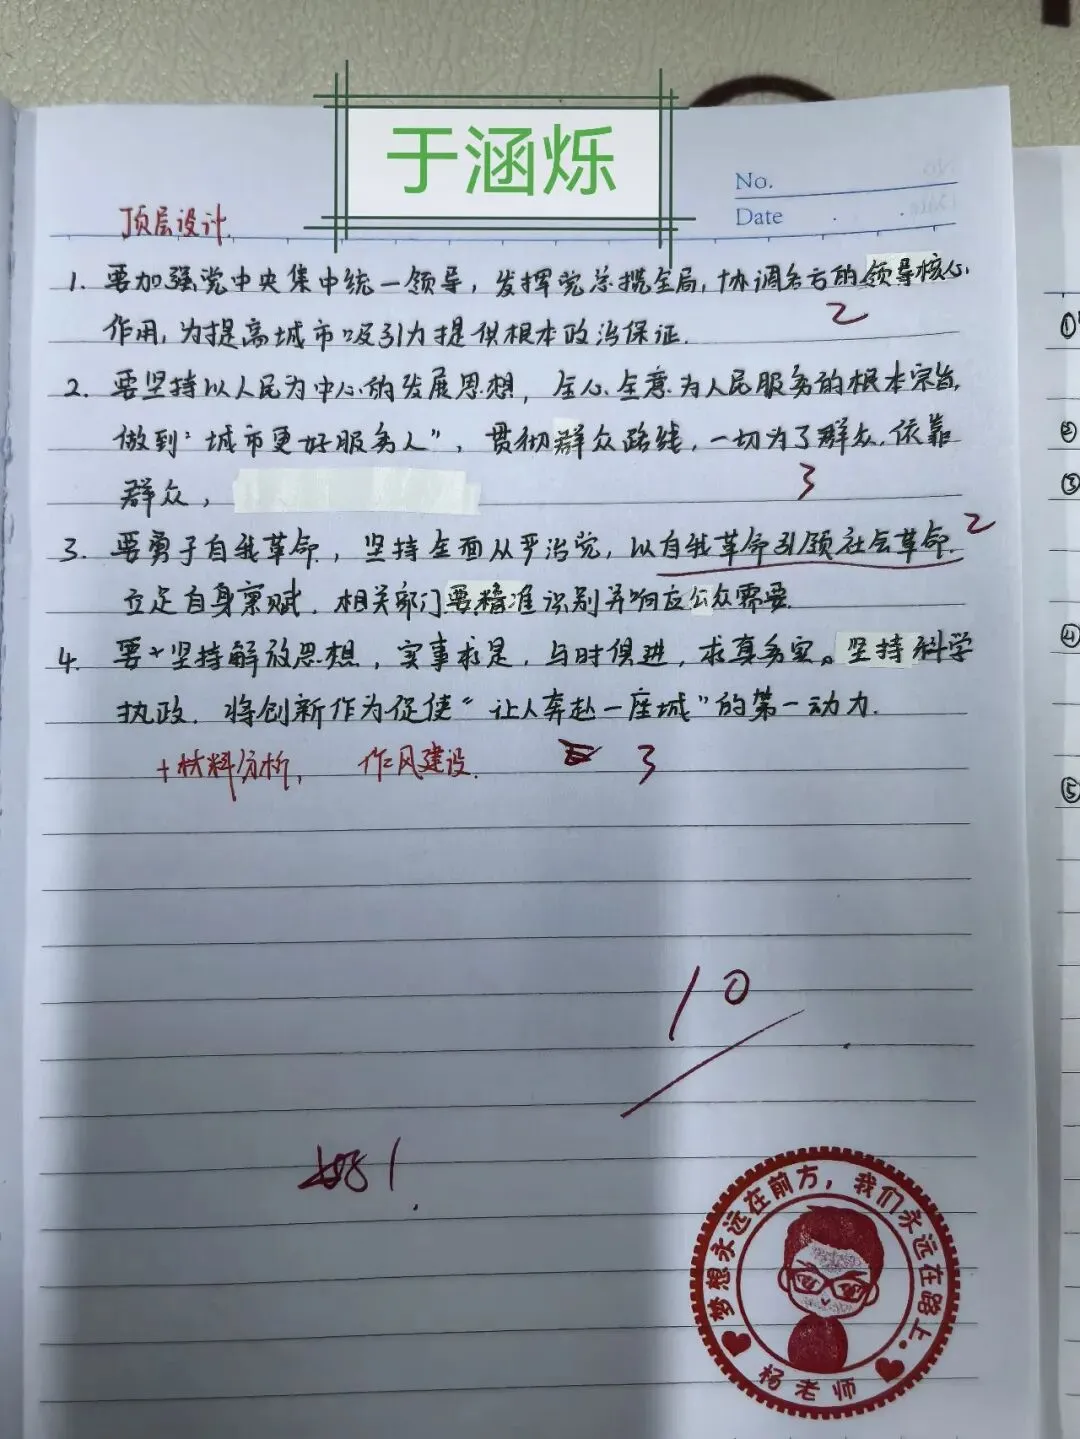 于涵烁
No.
Date
顶层设计.
1. 要加强党中央集中统一领导，发挥党总揽全局，协调各方的领导核心
2
作用，为提高城市吸引力提供根本政治保证.
2. 要坚持以人民为中心的发展思想，全心全意为人民服务的根本宗旨,
做到“城市更好服务人”，贯彻群众路线，一切为了群众，依靠
群众，
3
3. 要勇于自我革命，坚持全面从严治党，以自我革命引领社会革命.
2
立足自身禀赋，相关部门要精准识别并响应公众需要.
4. 要坚持解放思想，实事求是，与时俱进，求真务实。坚持科学
执政. 将创新作为促使“让人奔赴一座城”的第一动力.
+材料分析, 作风建设. 3
10
好!
梦想永远在前方，我们永远在路上.
杨老师
①
②
③
④
⑤